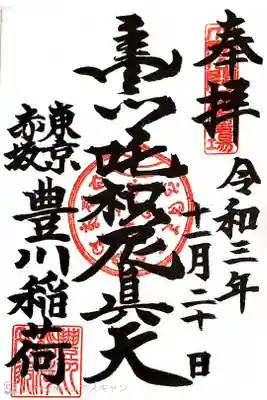 奉拝
令和三年
十一月二十日
豊川吒枳尼真天
東京
赤坂
豊川稲荷